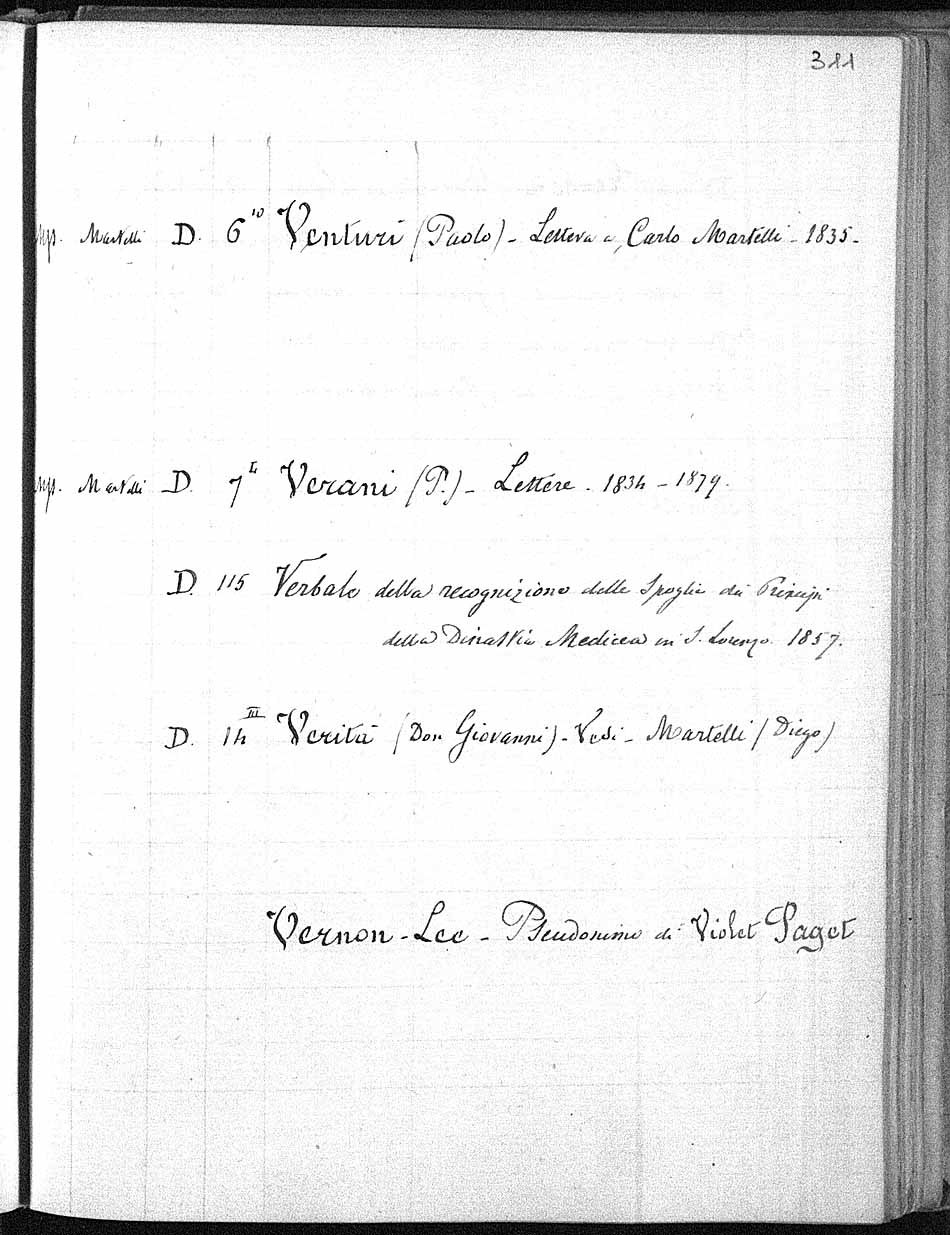 311
Mss. Martelli D. 6 10 Venturi (Paolo) - Lettera a Carlo Martelli - 1835 -
Mss. Martelli D. 7 L Verani (P.) - Lettere - 1834 - 1879.
D. 115 Verbale della recognizione delle Spoglie dei Principi
della Dinastia Medicea in S. Lorenzo. 1857.
D. 14 III Verità (Don Giovanni) - Vedi - Martelli (Diego)
Vernon - Lee - Pseudonimo di Violet Paget